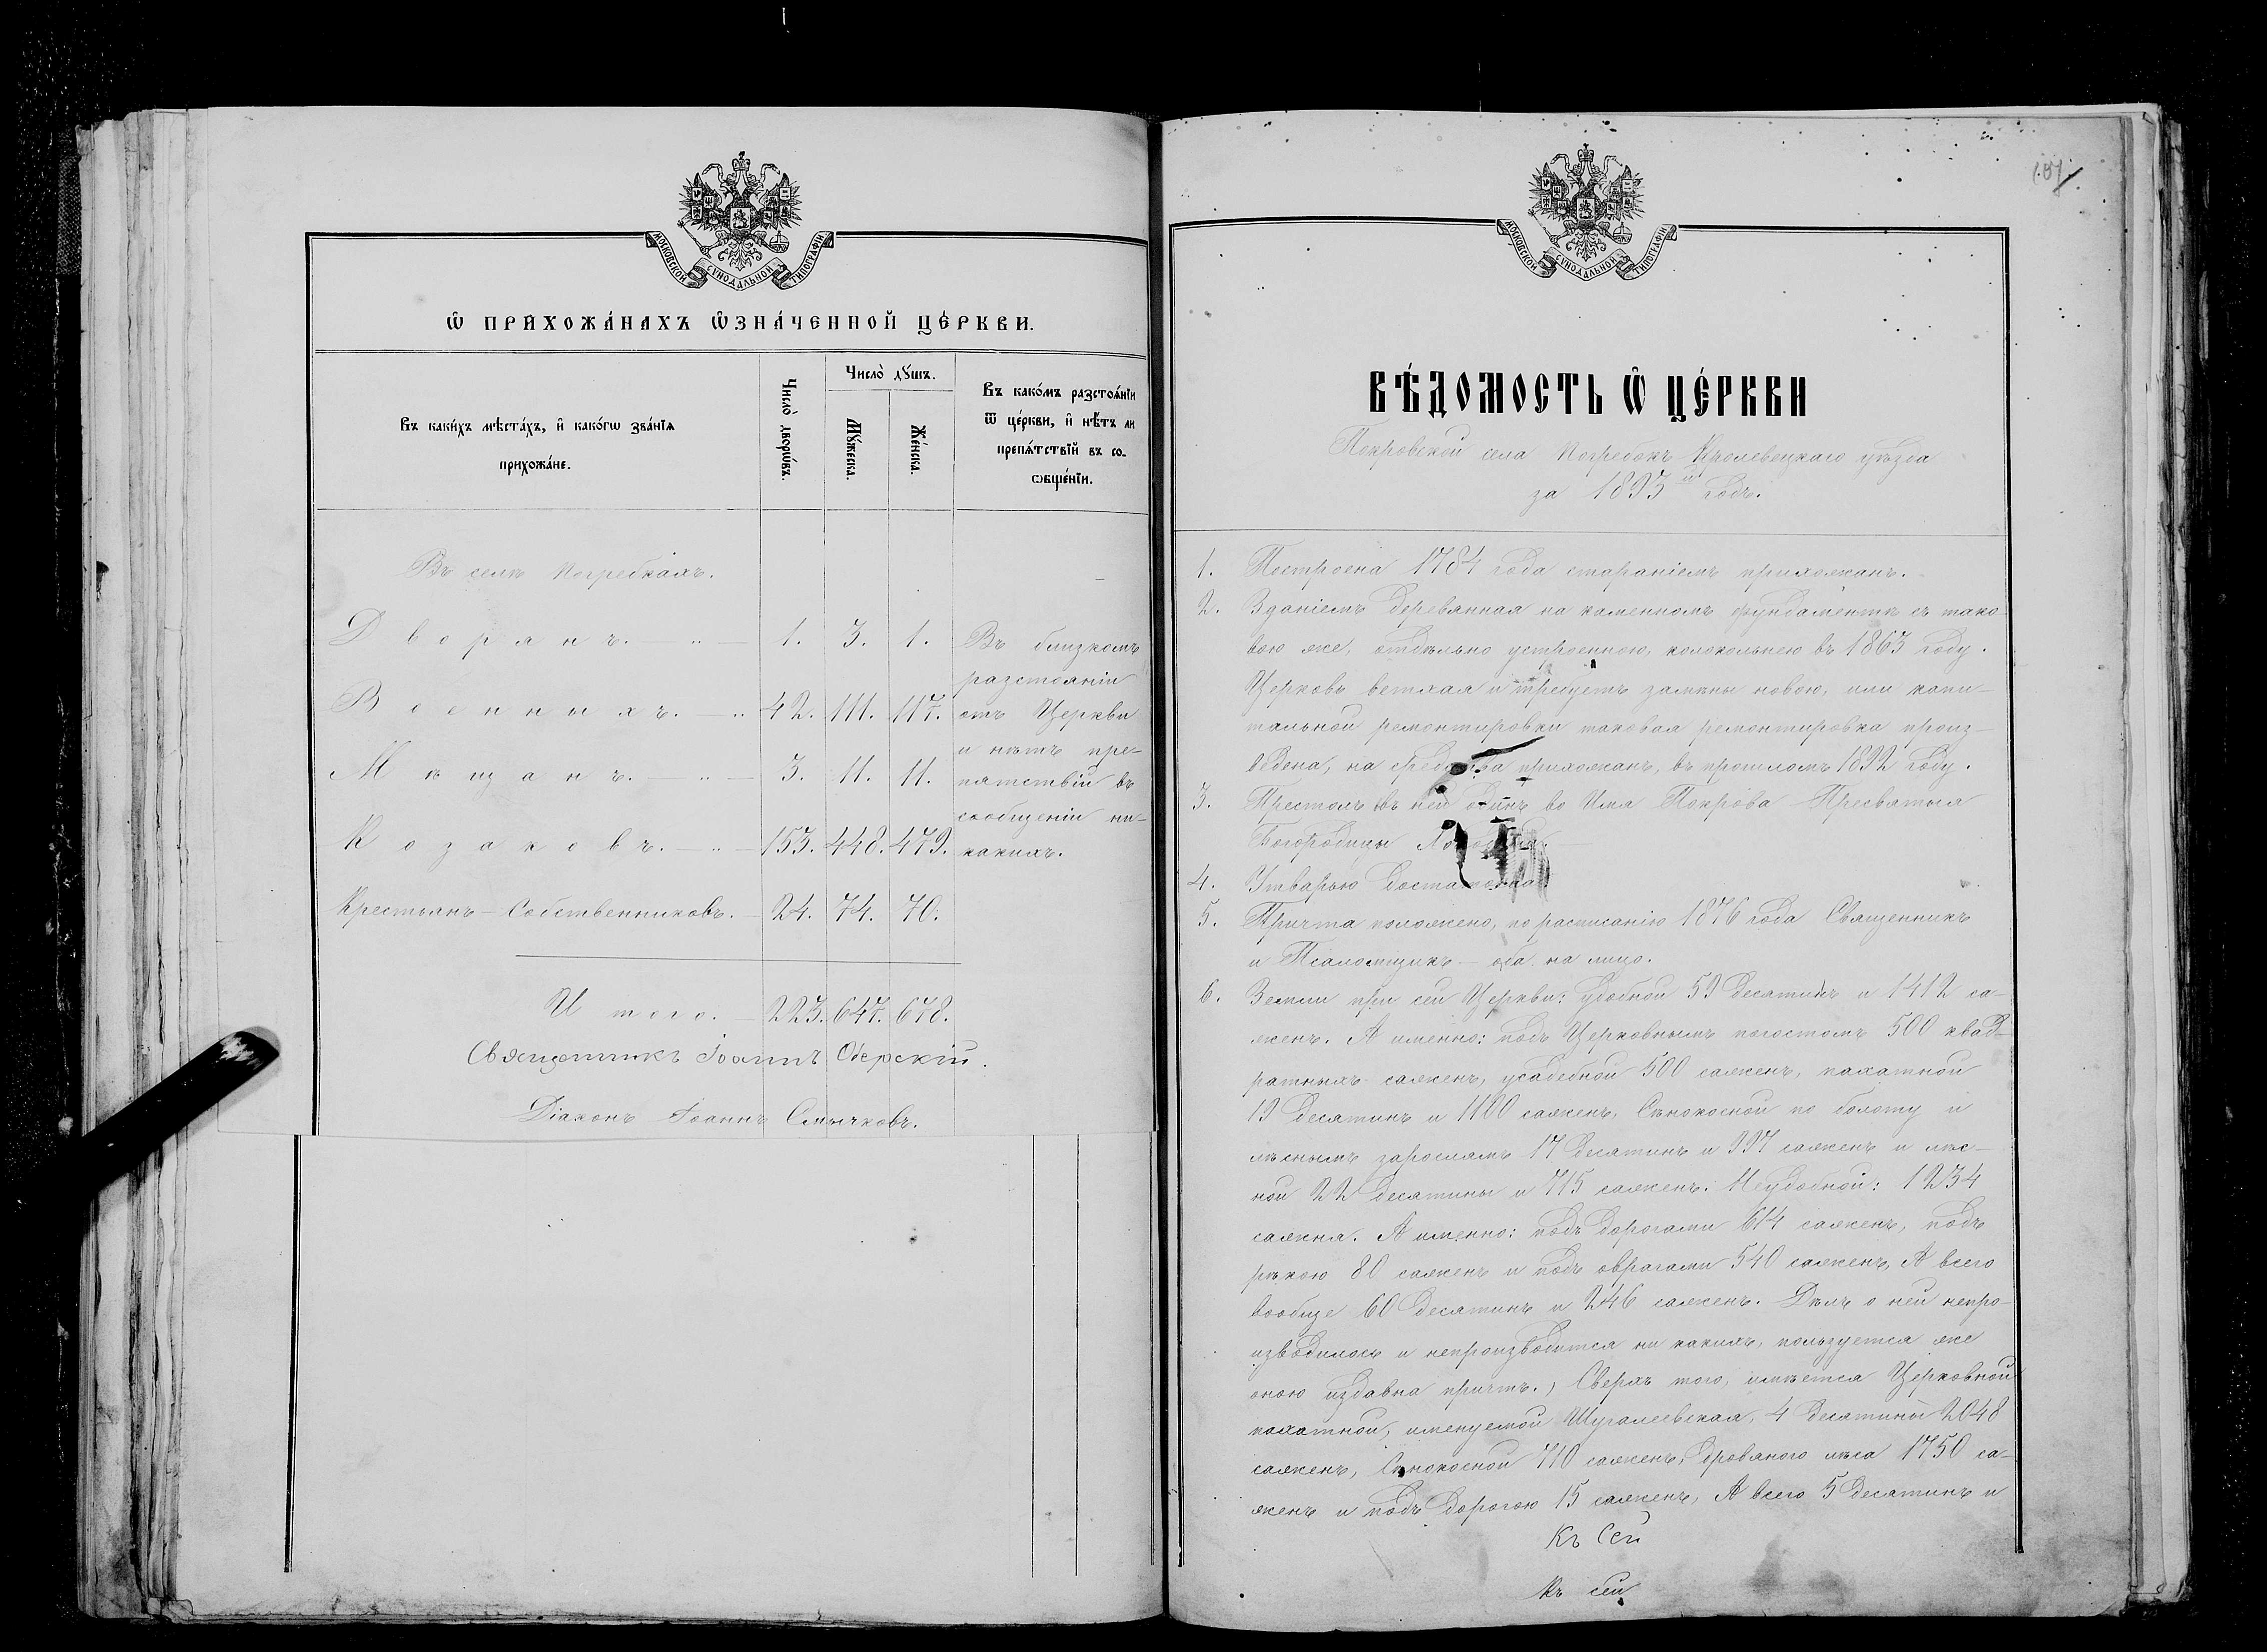 МОСКОВСКОЙ СѴНОДАЛЬНОЙ ТИПОГРАФІИ
Ѡ ПРИХОЖА́НАХЪ Ѡ҆ЗНА́ЧЕННОЙ ЦЕ́РКВИ.
Въ каки́хъ мѣста́хъ, и҆ како́гѡ зва́нїѧ прихожа́не.
Число̀ дворѡ́въ.
Число̀ дꙋшъ.
Мꙋ́жеска.
Же́нска.
Въ како́мъ разстоѧ́нїи
ѿ це́ркви, и҆ нѣ́тъ ли
препѧ́тствїй въ со-
ѡбще́нїи.
Въ селѣ Погребкахъ.
Дворянъ. — „ — 1. 3. 1.
Военныхъ. — „ 42. 111. 117.
Мѣщанъ. — „ — 3. 11. 11.
Козаковъ. — „ — 153. 448. 479.
Крестьянъ-Собственниковъ. — 24. 74. 70.
Въ близкомъ
разстояніи
отъ Церкви
и нѣтъ пре-
пятствій въ
сообщеніи ни-
какихъ.
Итого. — 223. 647. 678.
Священникъ Іоаннъ
Діаконъ Іоаннъ Смычковъ.
МОСКОВСКОЙ СѴНОДАЛЬНОЙ ТИПОГРАФІИ
ВѢ́ДОМОСТЬ Ѡ҆ ЦЕ́РКВИ
Покровской села Погребокъ Кролевецкаго уѣзда
за 1893й годъ.
1. Построена 1784 года стараніемъ прихожанъ.
2. Зданіемъ деревянная на каменномъ фундаментѣ съ тако
вою же, отдѣльно устроенною, колокольнею въ 1863 году.
Церковь ветхая и требуетъ замѣны новою, или капи-
тальной ремонтировки таковая ремонтировка произ-
ведена, на средства прихожанъ, въ прошломъ 1892 году.
3. Престолъ въ ней одинъ во Имя Покрова Пресвятыя
Богородицы
4. Утварью достаточна.
5. Причта положено, по расписанію 1876 года Священникъ
и Псаломщикъ — оба на лицо.
6. Земли при сей Церкви: удобной 59 десятинъ и 1412 са-
женъ. А именно: подъ Церковнымъ погостомъ 500 квад-
ратныхъ саженъ, усадебной 500 саженъ, пахатной
19 десятинъ и 1100 саженъ, Сѣнокосной по болоту и
лѣснымъ зарослямъ 17 десятинъ и 997 саженъ и лѣс-
ной 22 десятины и 715 саженъ. Неудобной: 1234
сажня. А именно: подъ дорогами 614 саженъ, подъ
рѣкою 80 саженъ и подъ оврагами 540 саженъ, А всего
вообще 60 десятинъ и 246 саженъ. Дѣлъ о ней непро-
изводилось и непроизводится ни какихъ, пользуется же
оною издавна причтъ., Сверхъ того, имѣется Церковной
пахатной, именуемой Шугалеевская, 4 десятины 2048
саженъ, Сѣнокосной 710 саженъ, дровяного лѣса 1750 са-
женъ и подъ дорогою 15 саженъ, А всего 5 десятинъ и
Къ Сей
Къ сей